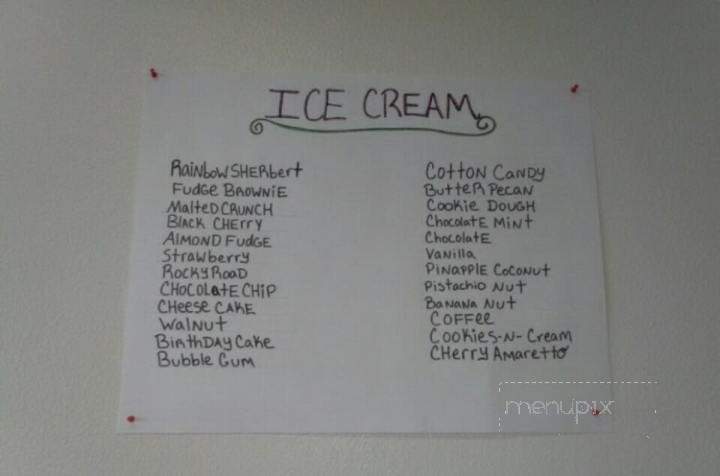 ICE CREAM
RAiNboW SHERbert
FUDGE BROWNiE
MalteD CRUNCH
BLACK CHERRY
AlMOND FUDGE
StRaWbeRRy
ROCKY ROAD
CHOCOLatE CHiP
CHeese CAKE
WalNUt
BiRtHDAY Cake
Bubble GUM
COttON CaNDY
ButteR PecaN
COOKie DOUGH
CHocolatE MiNt
CHocolatE
VaNilla
PiNAPPlE CocoNUt
PistacHio NUt
BaNaNa NUt
COFFee
COOKiES-N-CReam
CHeRRY AmaRettO
menupix